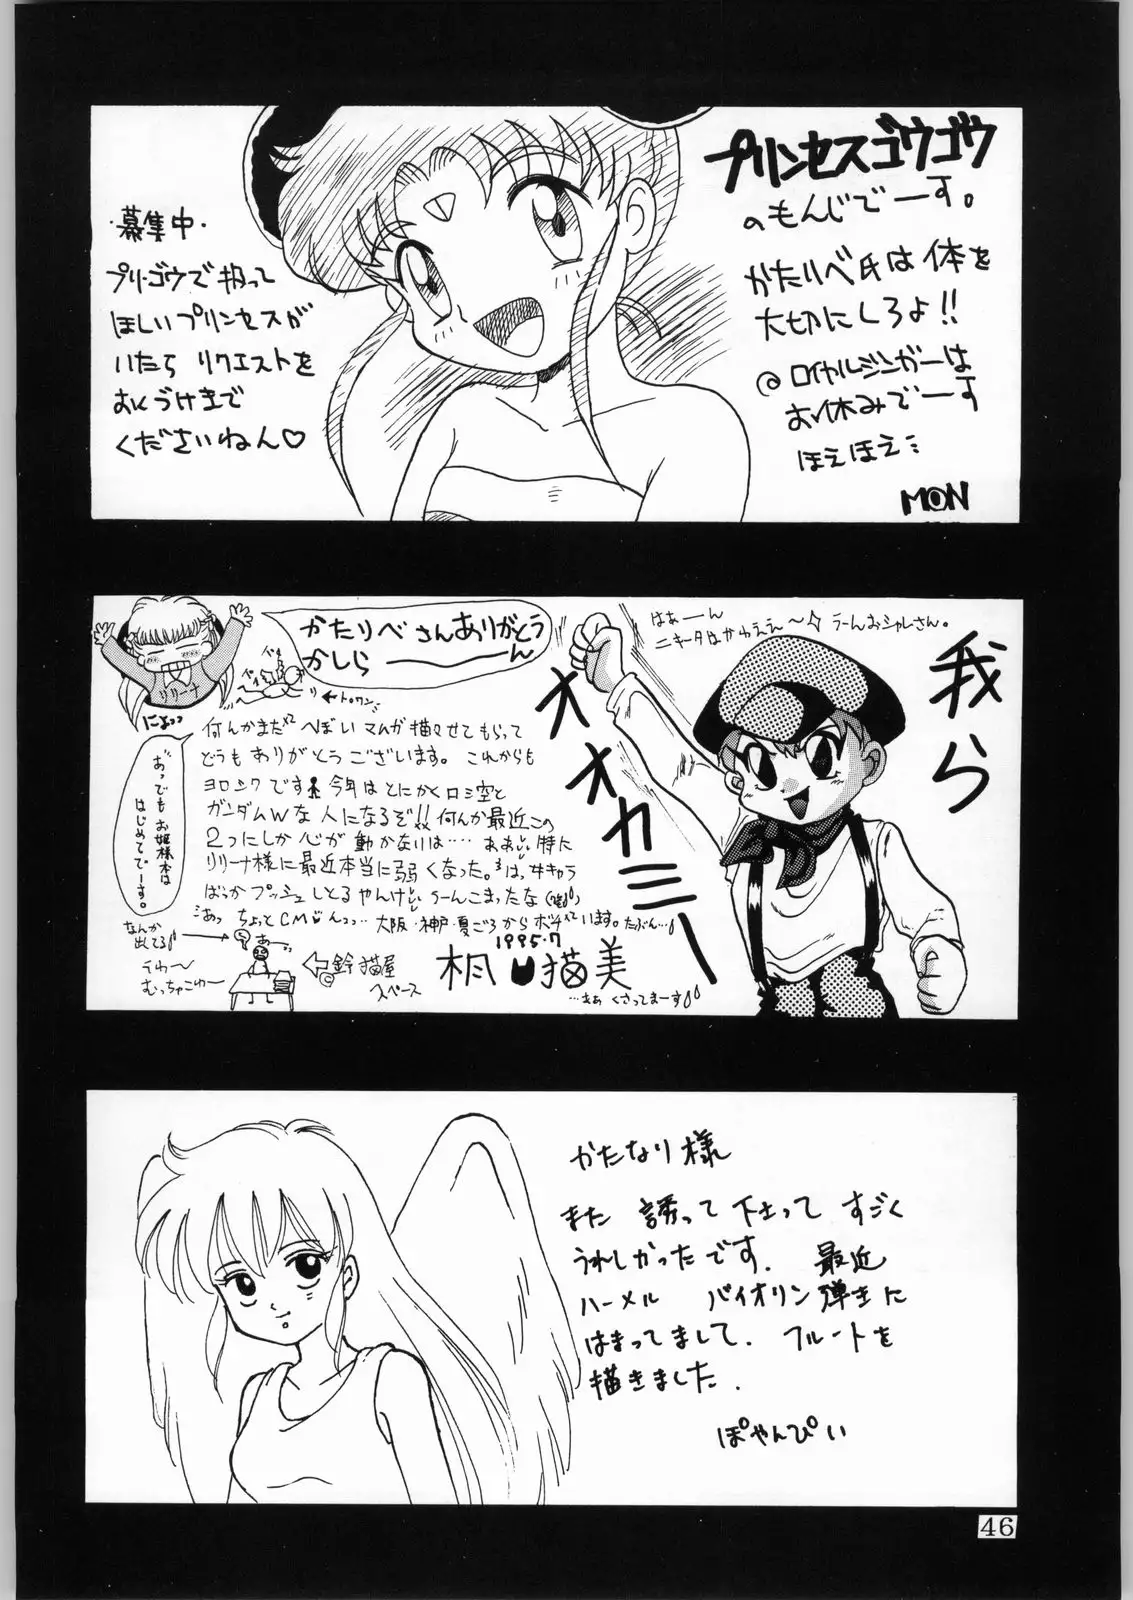 プリンセスゴウゴウ
のもんじでーす。
かたりべ氏は体を
大切にしろよ!!
ロイヤルジンガーは
お休みでーす
ほえほえ
MON
・募集中・
プリ・ゴウで扱って
ほしいプリンセスが
いたら リクエストを
おくづけまで
くださいねん♡
はぁーーん
ニキータはかわええ〜 うーんおシャレさん。
我ら
オオカミー
かたりべさんありがとう
かしら―――ん
リリーナ
にょっっ
おっでもお姫様本は
はじめてでーす。
何んかまた へぼいマンガ描かせてもらって
どうもありがとうございます。これからも
ヨロシクです 今年はとにかくロミ空と
ガンダムWな人になるぞ!!何んか最近この
2つにしか心が動かなりは…ああ 特に
リリーナ様に最近本当に弱くなった。は、女キャラ
ばっかプッシュしとるやんけ うーんこまったな
あっ ちょっとCM 大阪・神戸・夏ごろからボチって います。たぶん…
なんか
出てる
あーっ
うわ〜
むっちゃこわ〜
鈴猫屋
スペース
1995.7
桐 猫美
…まぁ くさってまーす
かたなり様
また 誘って下さって すごく
うれしかったです. 最近
ハーメル バイオリン弾きに
はまってまして. フルートを
描きました.
ぽやんぴい
46